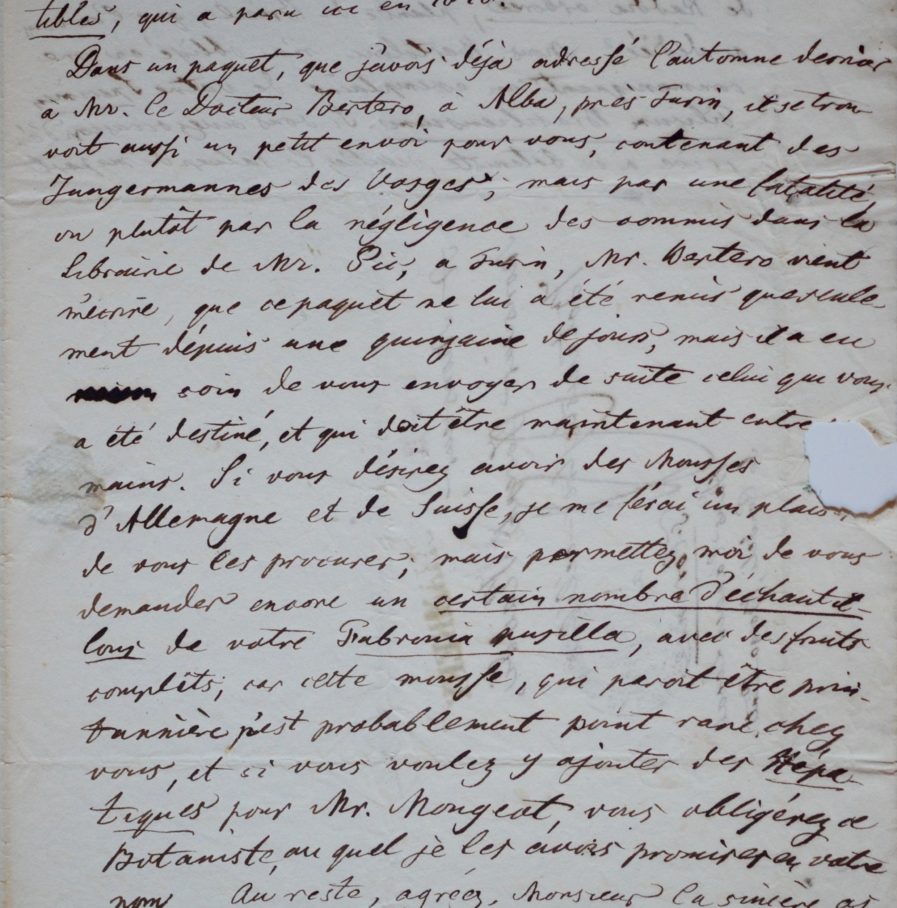 tibles, qui a paru ici en
Dans un paquet, que j'avois déja adressé l'automne dernier
a Mr. le Docteur Bertero, à Alba, près Turin, it se trou
voit aussi un petit envoi pour vous, contenant des
Jungermannes des Vosges; mais par une fatalité,
ou plutôt par la négligence des commis dans la
Librairie de Mr. Pic, a Turin, Mr. Bertero vient
m'ecrire, que ce paquet ne lui a été remis que seule
ment dépuis une quinzaine de jours, mais il a eu
soin de vous envoyer de suite celui qui vous
a été destiné, et qui doit être maintenant entre
mains. Si vous désirez avoir des Mousses
d'Allemagne et de Suisse, je me férai un plais
de vous les procurer; mais permettez, moi de vous
demander encore un certain nombre d'échantil-
lons de votre Fabronia pusilla, avec des fruits
complêts; car cette mousse, qui paroit être prin-
tannière n'est probablement point rare chez
vous, et si vous voulez y ajouter des Hépa-
tiques pour Mr. Mougeot, vous obligérez ce
Botaniste, au quel je les avois promises en votre
nom Au reste, agréez, Monsieur la sincère as